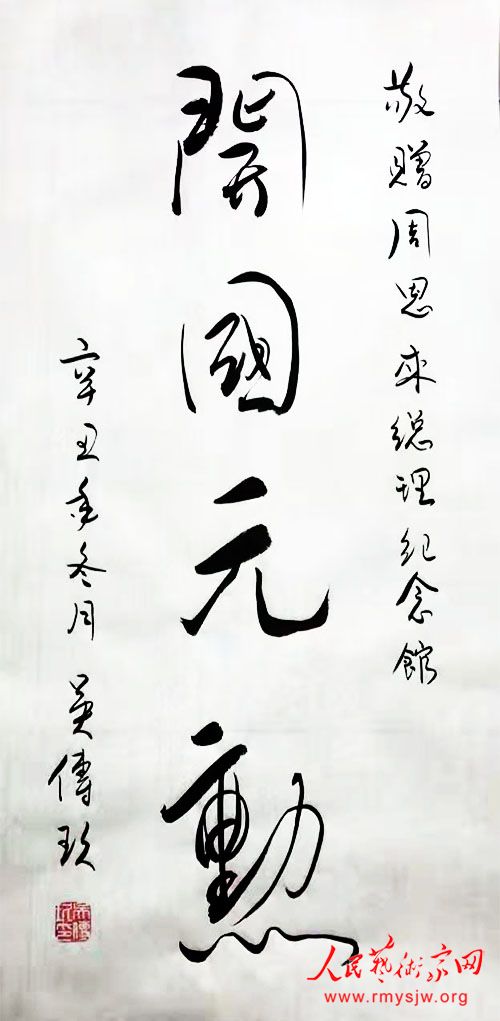 敬贈周恩來總理纪念館
開國元勳
辛丑年冬月 吳傳玖
人民藝術家网
www.rmysjw.org